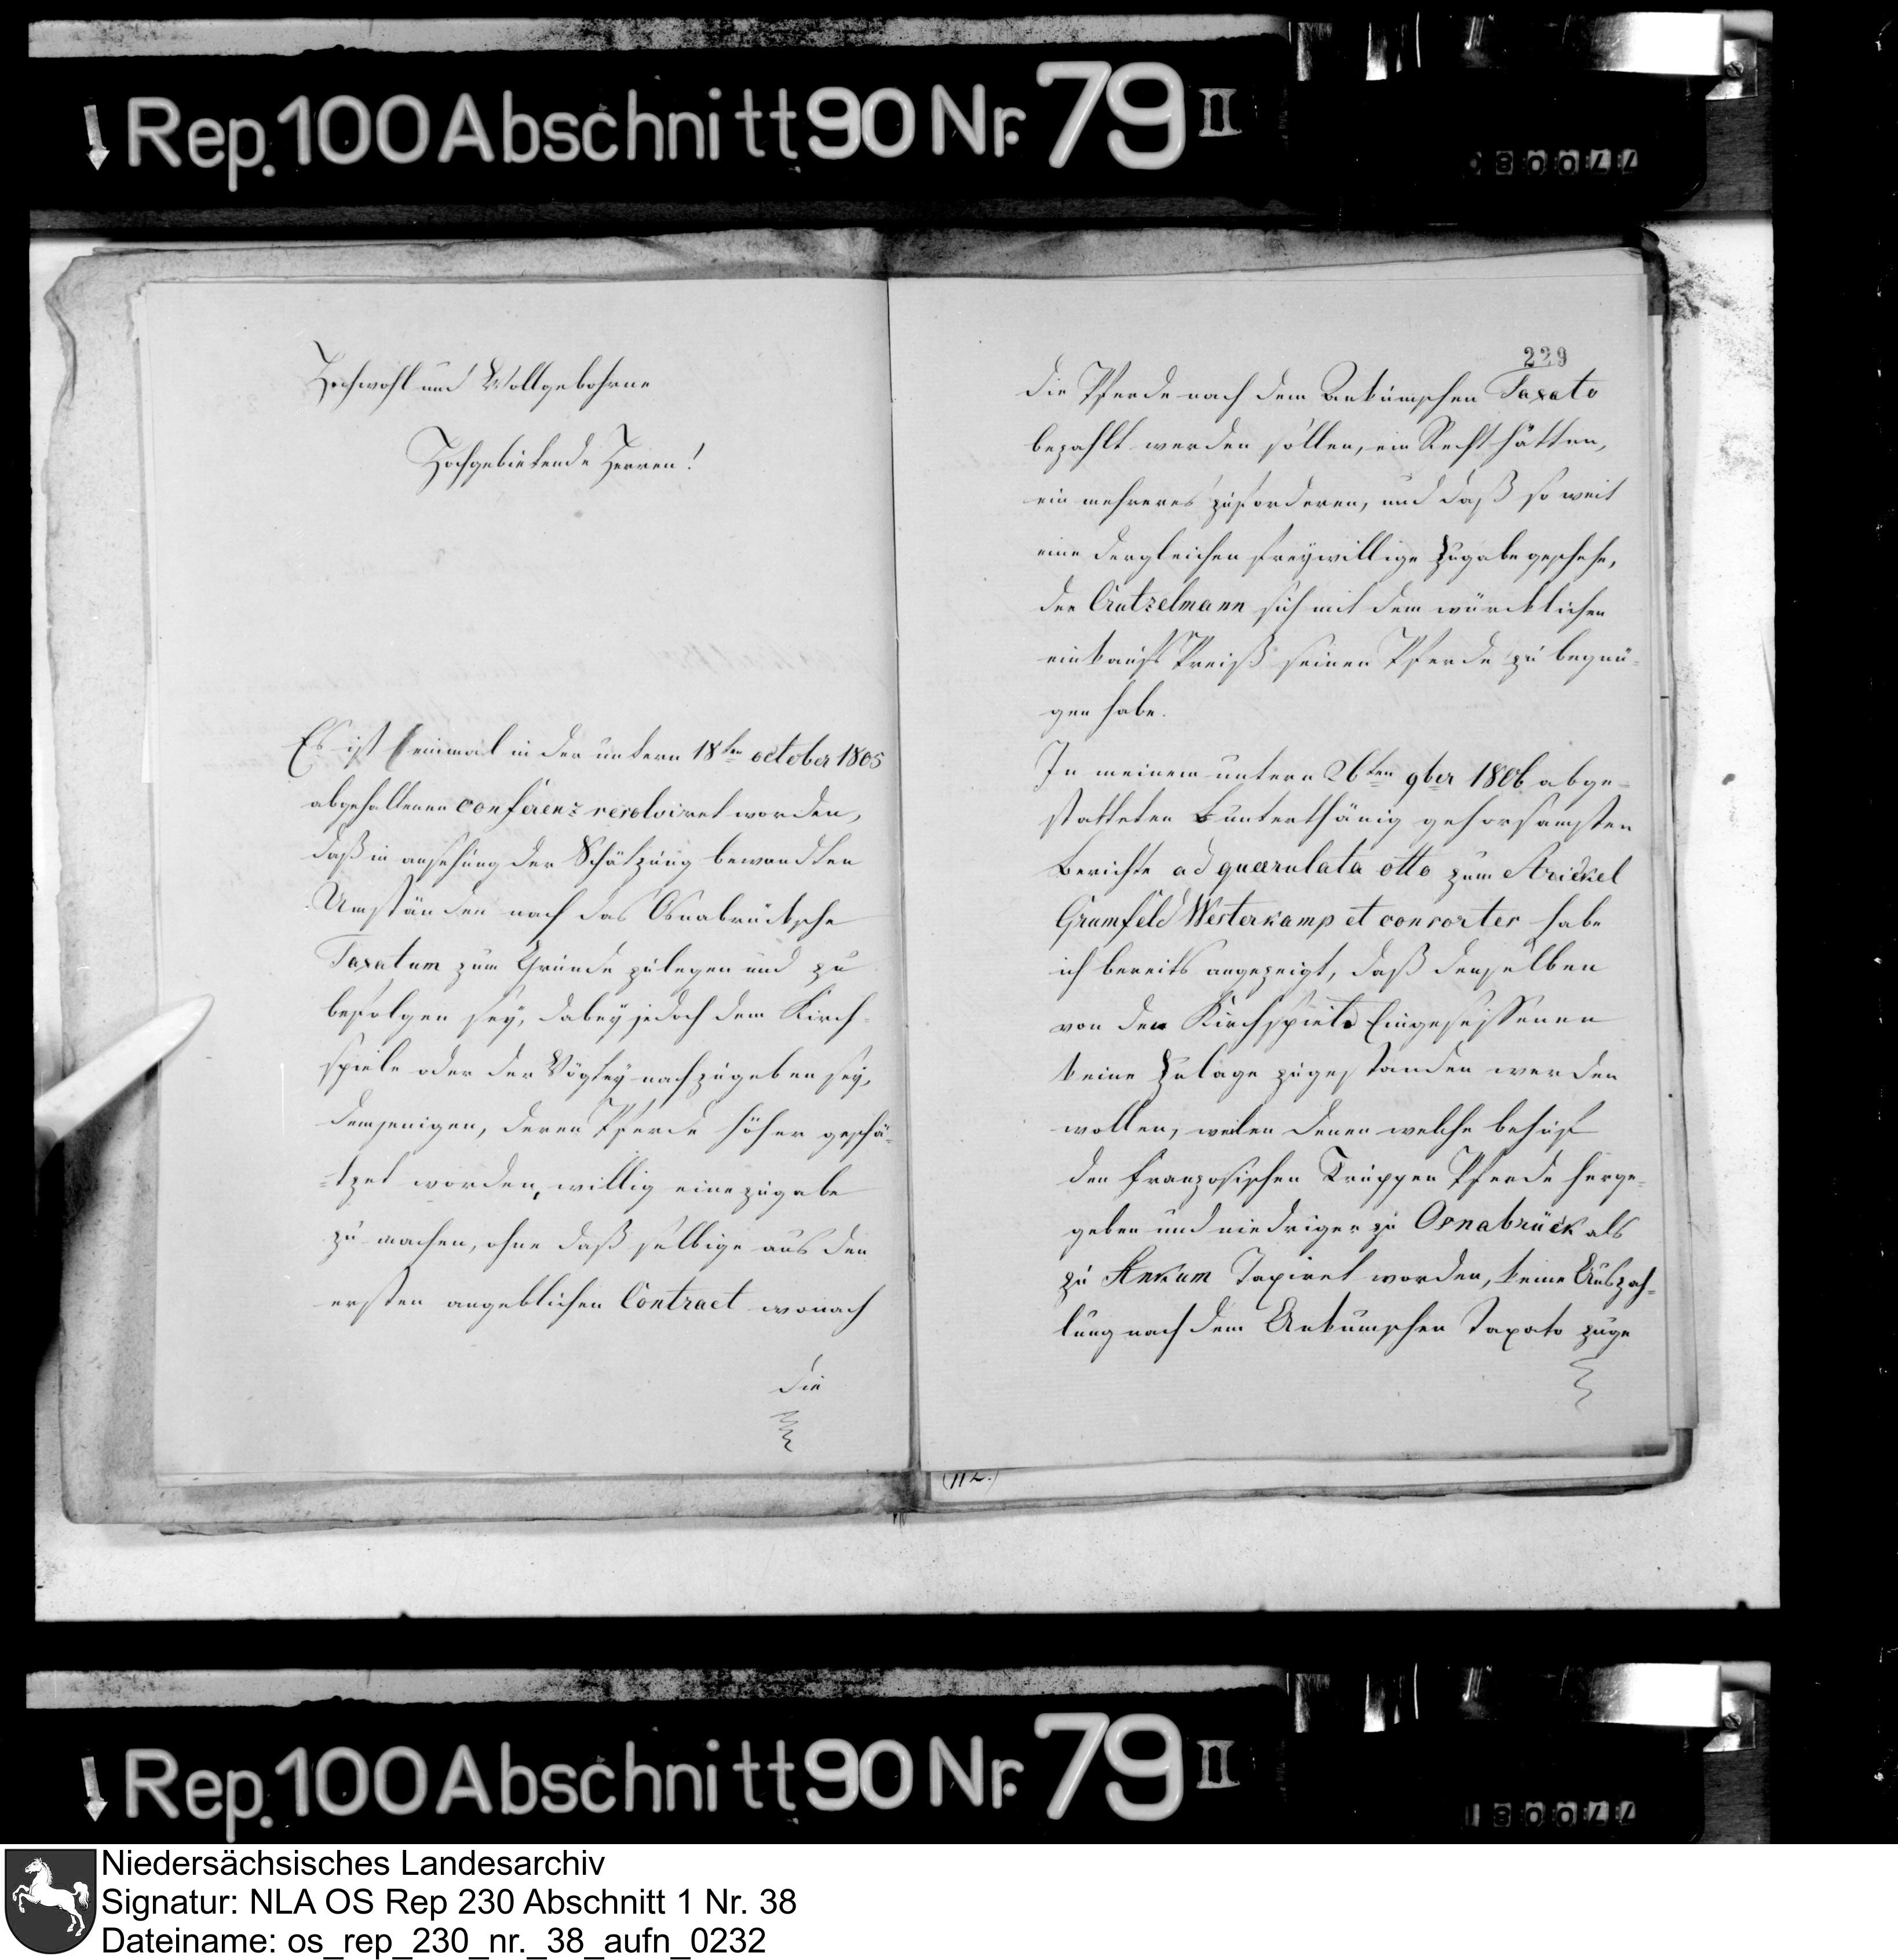 Rep. 100 Abschnitt 90 Nr. 79 II
Hochwohl und Wollgebohrne
Hochgebietende Herren!
Es ist einmal in der unterm 18ten october 1805
abgehaltenen conferenz resolviret worden,
daß in ansehung der Schätzung bewandten
Umständen nach das Osnabrücksche
Taxatum zum Grunde zulegen und zu
befolgen sey, dabey jedoch dem Kirch-
spiele oder der Vogtey nachzugeben sey,
demjenigen, deren Pferde höher geschä-
-tzet worden, willig eine zugabe
zu machen, ohne daß selbige aus den
ersten angeblichen Contract wonach
die
229
die Pferde nach dem Ankumschen Taxato
bezahlt werden sollen, ein Recht hätten,
ein mehreres zufordern, und daß so weit
eine dergleichen freywillige Zugabe geschehe,
der Crutzelmann sich mit dem würcklichen
einkaufs Preiß seiner Pferde zu begnü-
gen habe.
In meinem unterm 26ten 9ber 1806 abge-
statteten unterthänig gehorsamsten
berichte ad quærulata otto zum Strickel
Grumfeld Westerkamp et consorter habe
ich bereits angezeigt, daß denselben
von den Kirchspiels Eingesessenen
keine Zulage zugestanden werden
wollen, weilen denen welche behuf
den französischen Truppen Pferde herge-
geben und niedriger zu Osnabrück als
zu Ankum Taxiret worden, keine Auszah-
lung nach dem Ankumschen Taxato zuge
(112.)
Rep. 100 Abschnitt 90 Nr. 79 II
Niedersächsisches Landesarchiv
Signatur: NLA OS Rep 230 Abschnitt 1 Nr. 38
Dateiname: os_rep_230_nr._38_aufn_0232